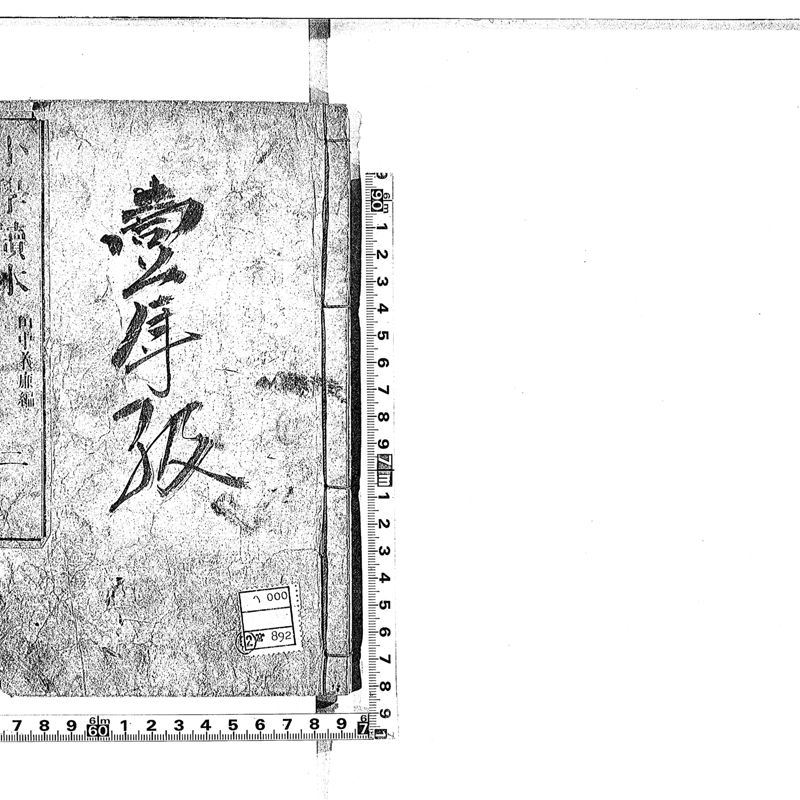 壹年級
小學讀本
田中義廉編
二
000
892
9 6m 90 1 2 3 4 5 6 7 8 9 7m 1 2 3 4 5 6 7 8 9
7 8 9 6m 60 1 2 3 4 5 6 7 8 9